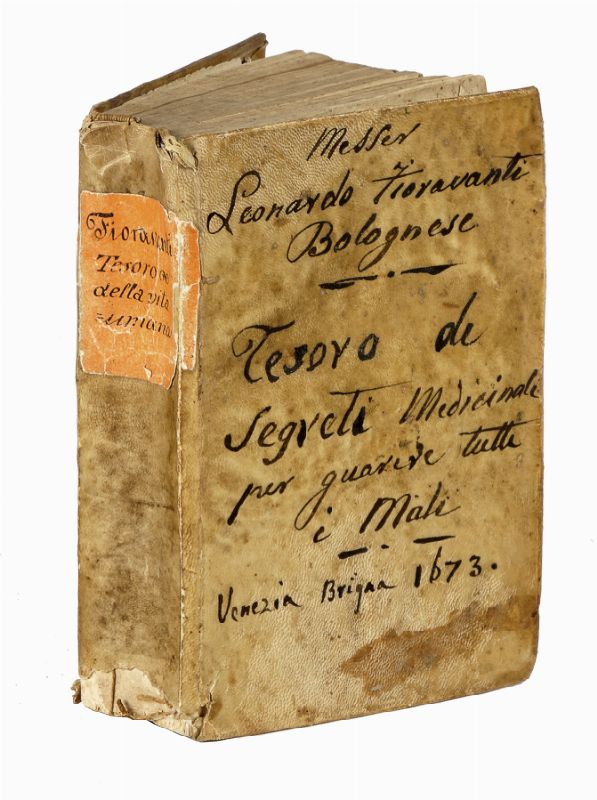 Fioravanti
Tesoro
della vita
=umana
Messer
Leonardo Fioravanti
Bolognese
Tesoro de
Segreti Medicinali
per guarire tutti
i Mali
Venezia Brigna 1673.